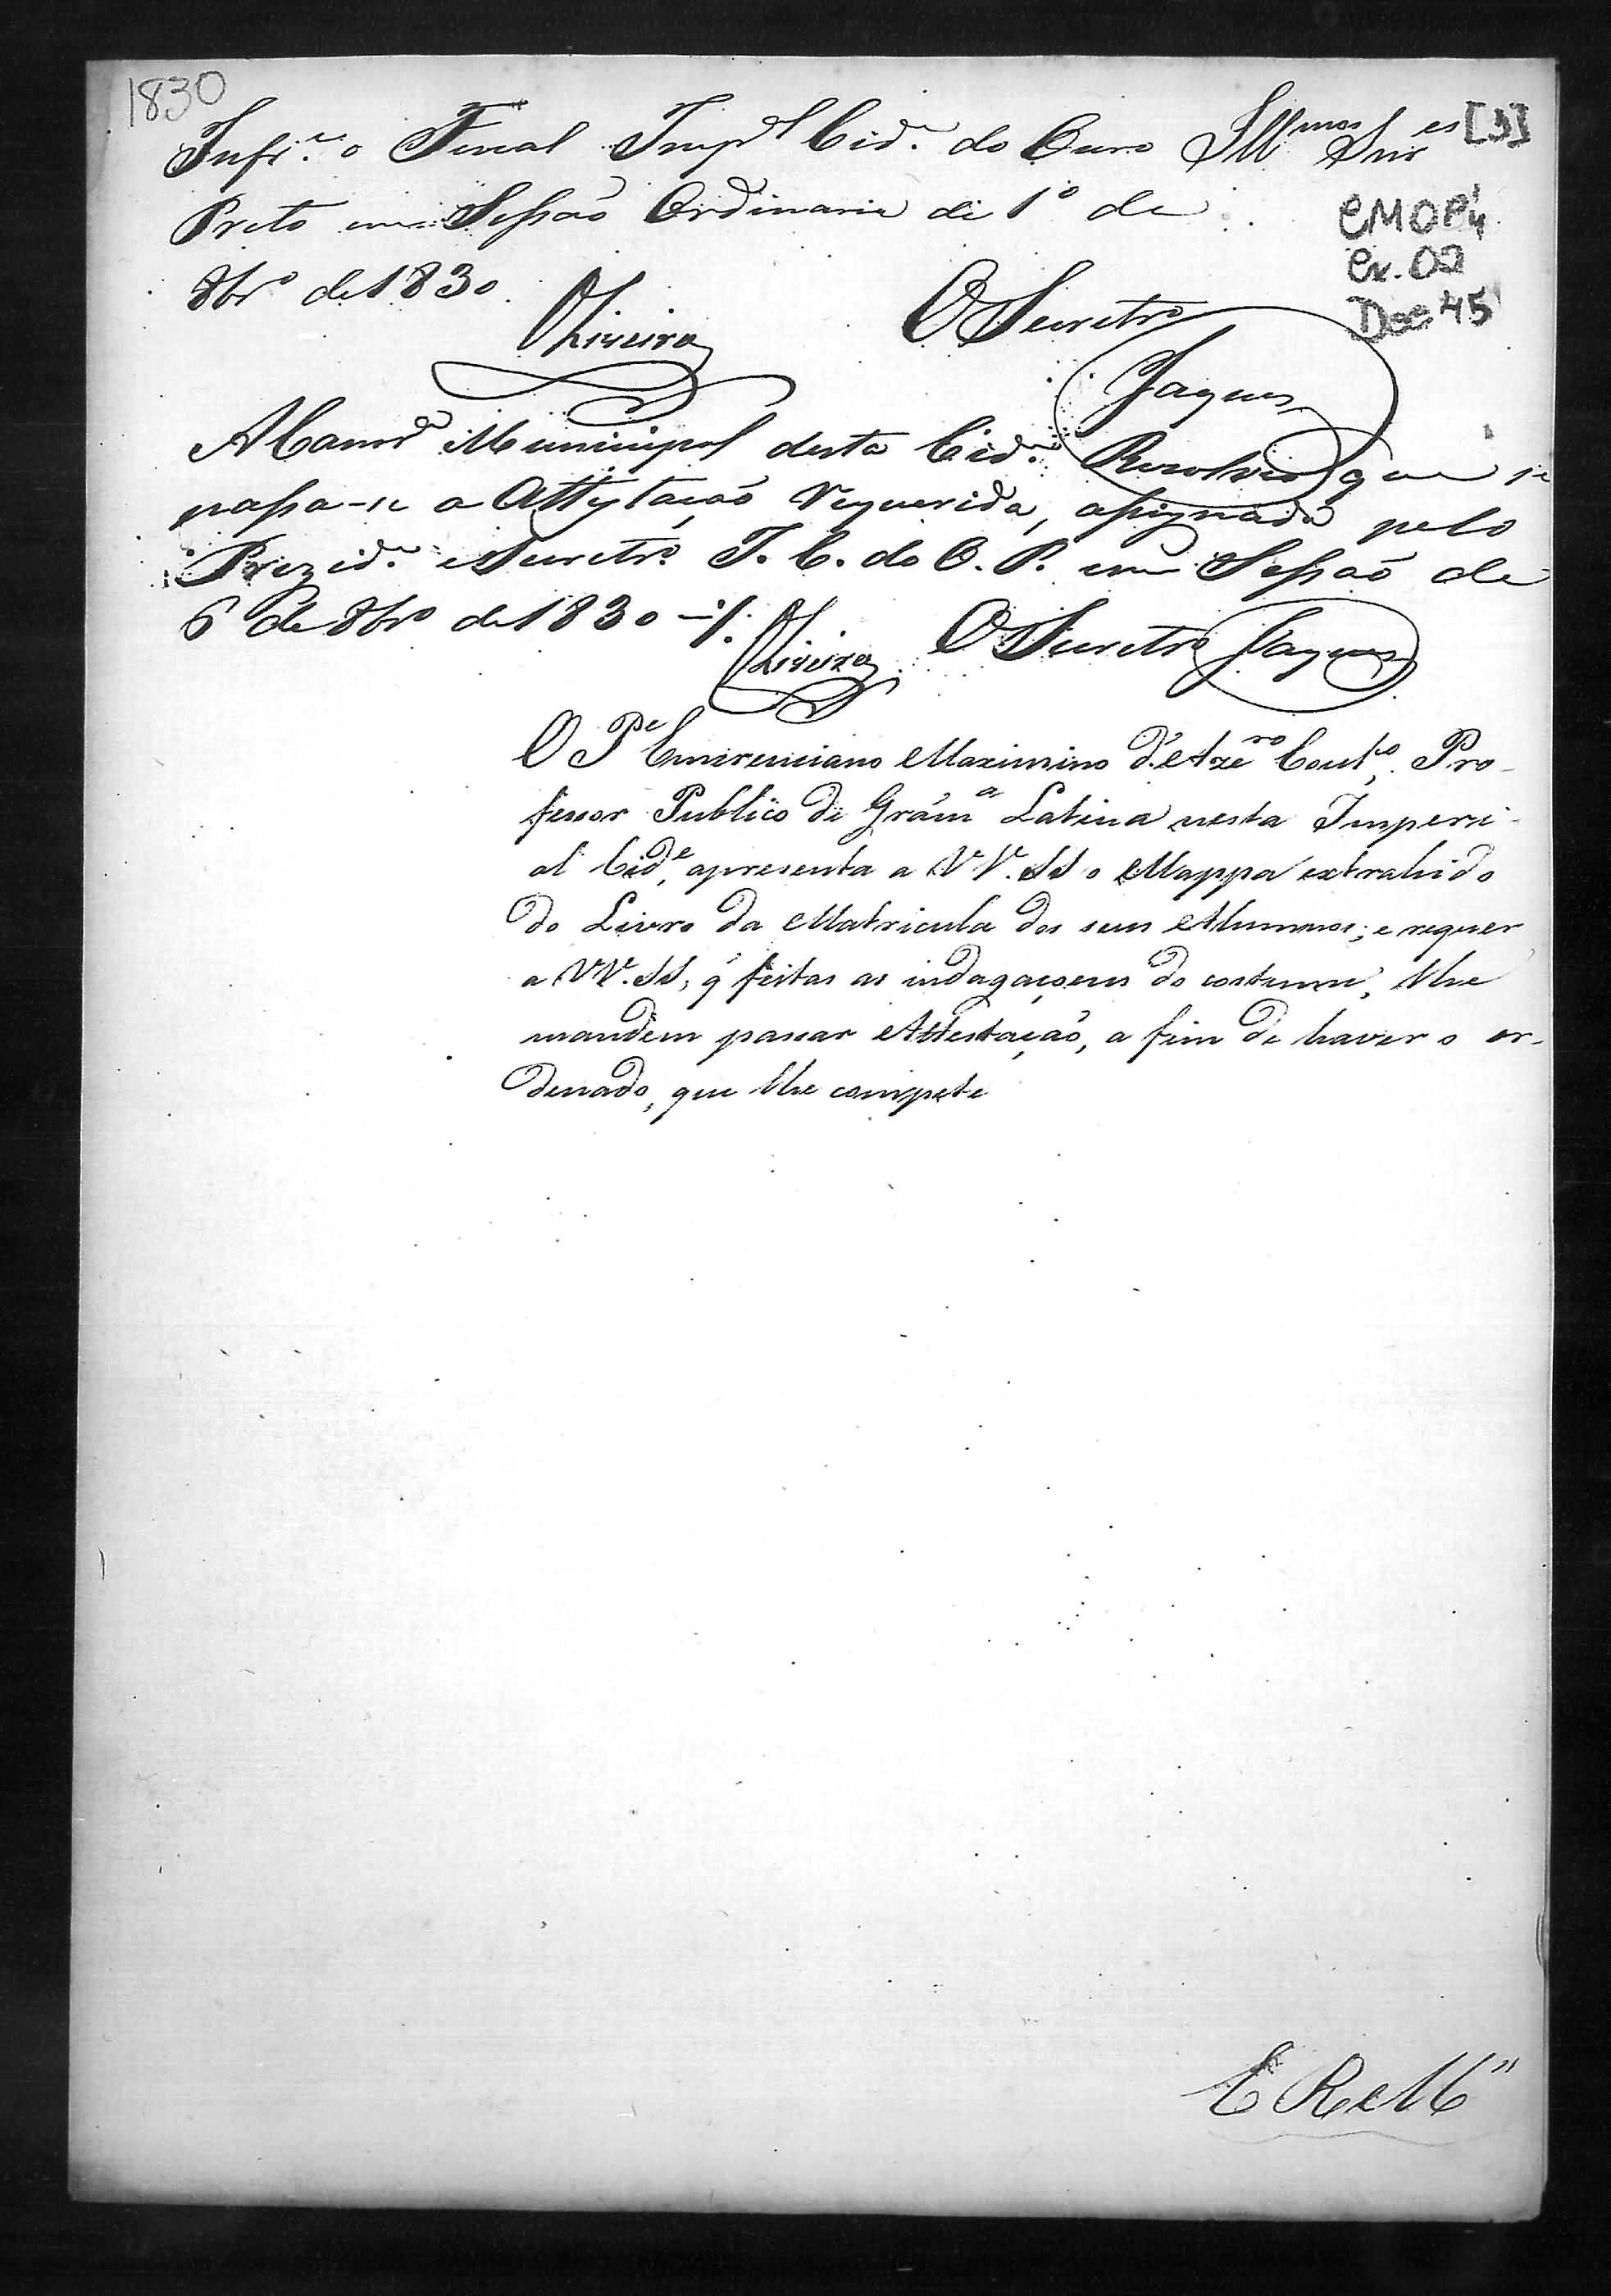 1830
Infr.e o Fiscal Imp.l Cid.e do Ouro Ill.mos Snr.es [3]
Preto em Sessaõ Ordinaria de 1º de
8br.º de 1830.
CMOP
Cx. 02
Doc 45
Oliveira
O Secretr.º
Jaques
A Camr.a Municipal desta Cid.e Resolveo que se
passa-se a Attestaçaõ requerida, assignada pelo
Prezid.e e Secretr.º I. C. do O. P. em Sessaõ de
6 de 8br.º de 1830
Oliveira O Secretr.º Jaques
O P.e Emerenciano Maximino d'Azer.o Cout.º, Pro-
fessor Publico de Gram.a Latina nesta Imperi-
al Cid.e, apresenta a VV. SS o Mappa extrahido
do Livro da Matricula dos seus Alumnos; e requer
a VV. SS, q' feitas as indagaçoens do costume, lhe
mandem passar Attestaçaõ, a fim de haver o or-
denado, que lhe compete
E R M